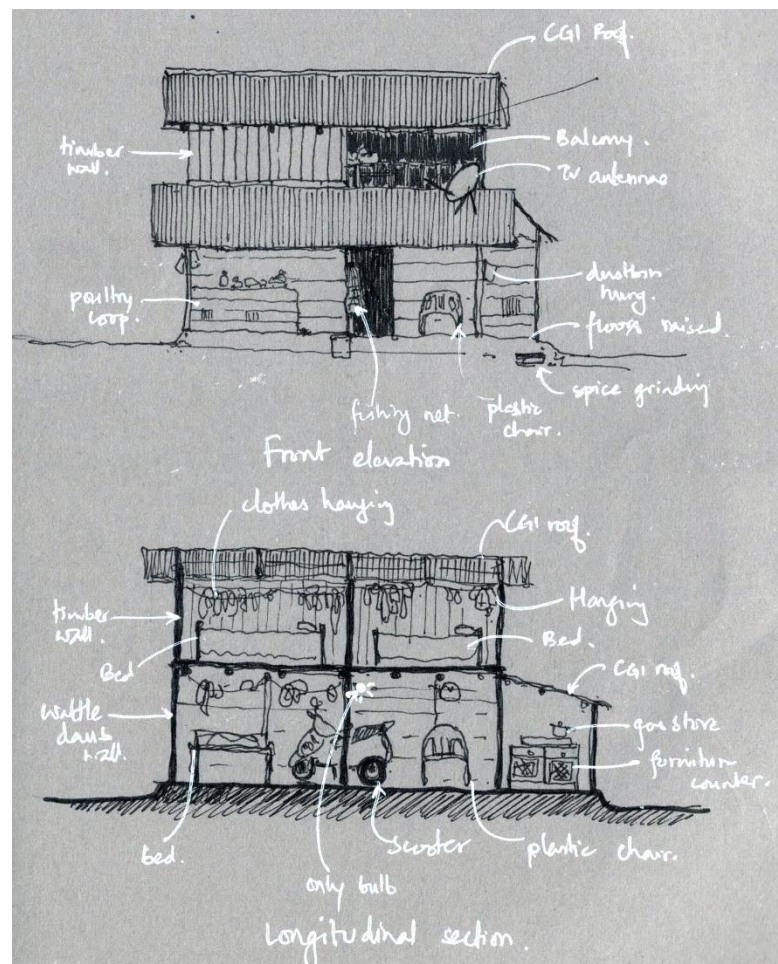 CGI Roof.
timber
wall.
Balcony.
TV antennae
poultry
coop.
dustbin
hung.
floor raised.
spice grinding
fishing net.
plastic
chair.
Front elevation
clothes hanging
CGI roof.
timber
wall.
Hanging
Bed
Bed.
CGI roof.
wattle
daub
wall.
gas stove
furniture
counter.
Bed.
scooter
plastic chair.
only bulb
Longitudinal section.